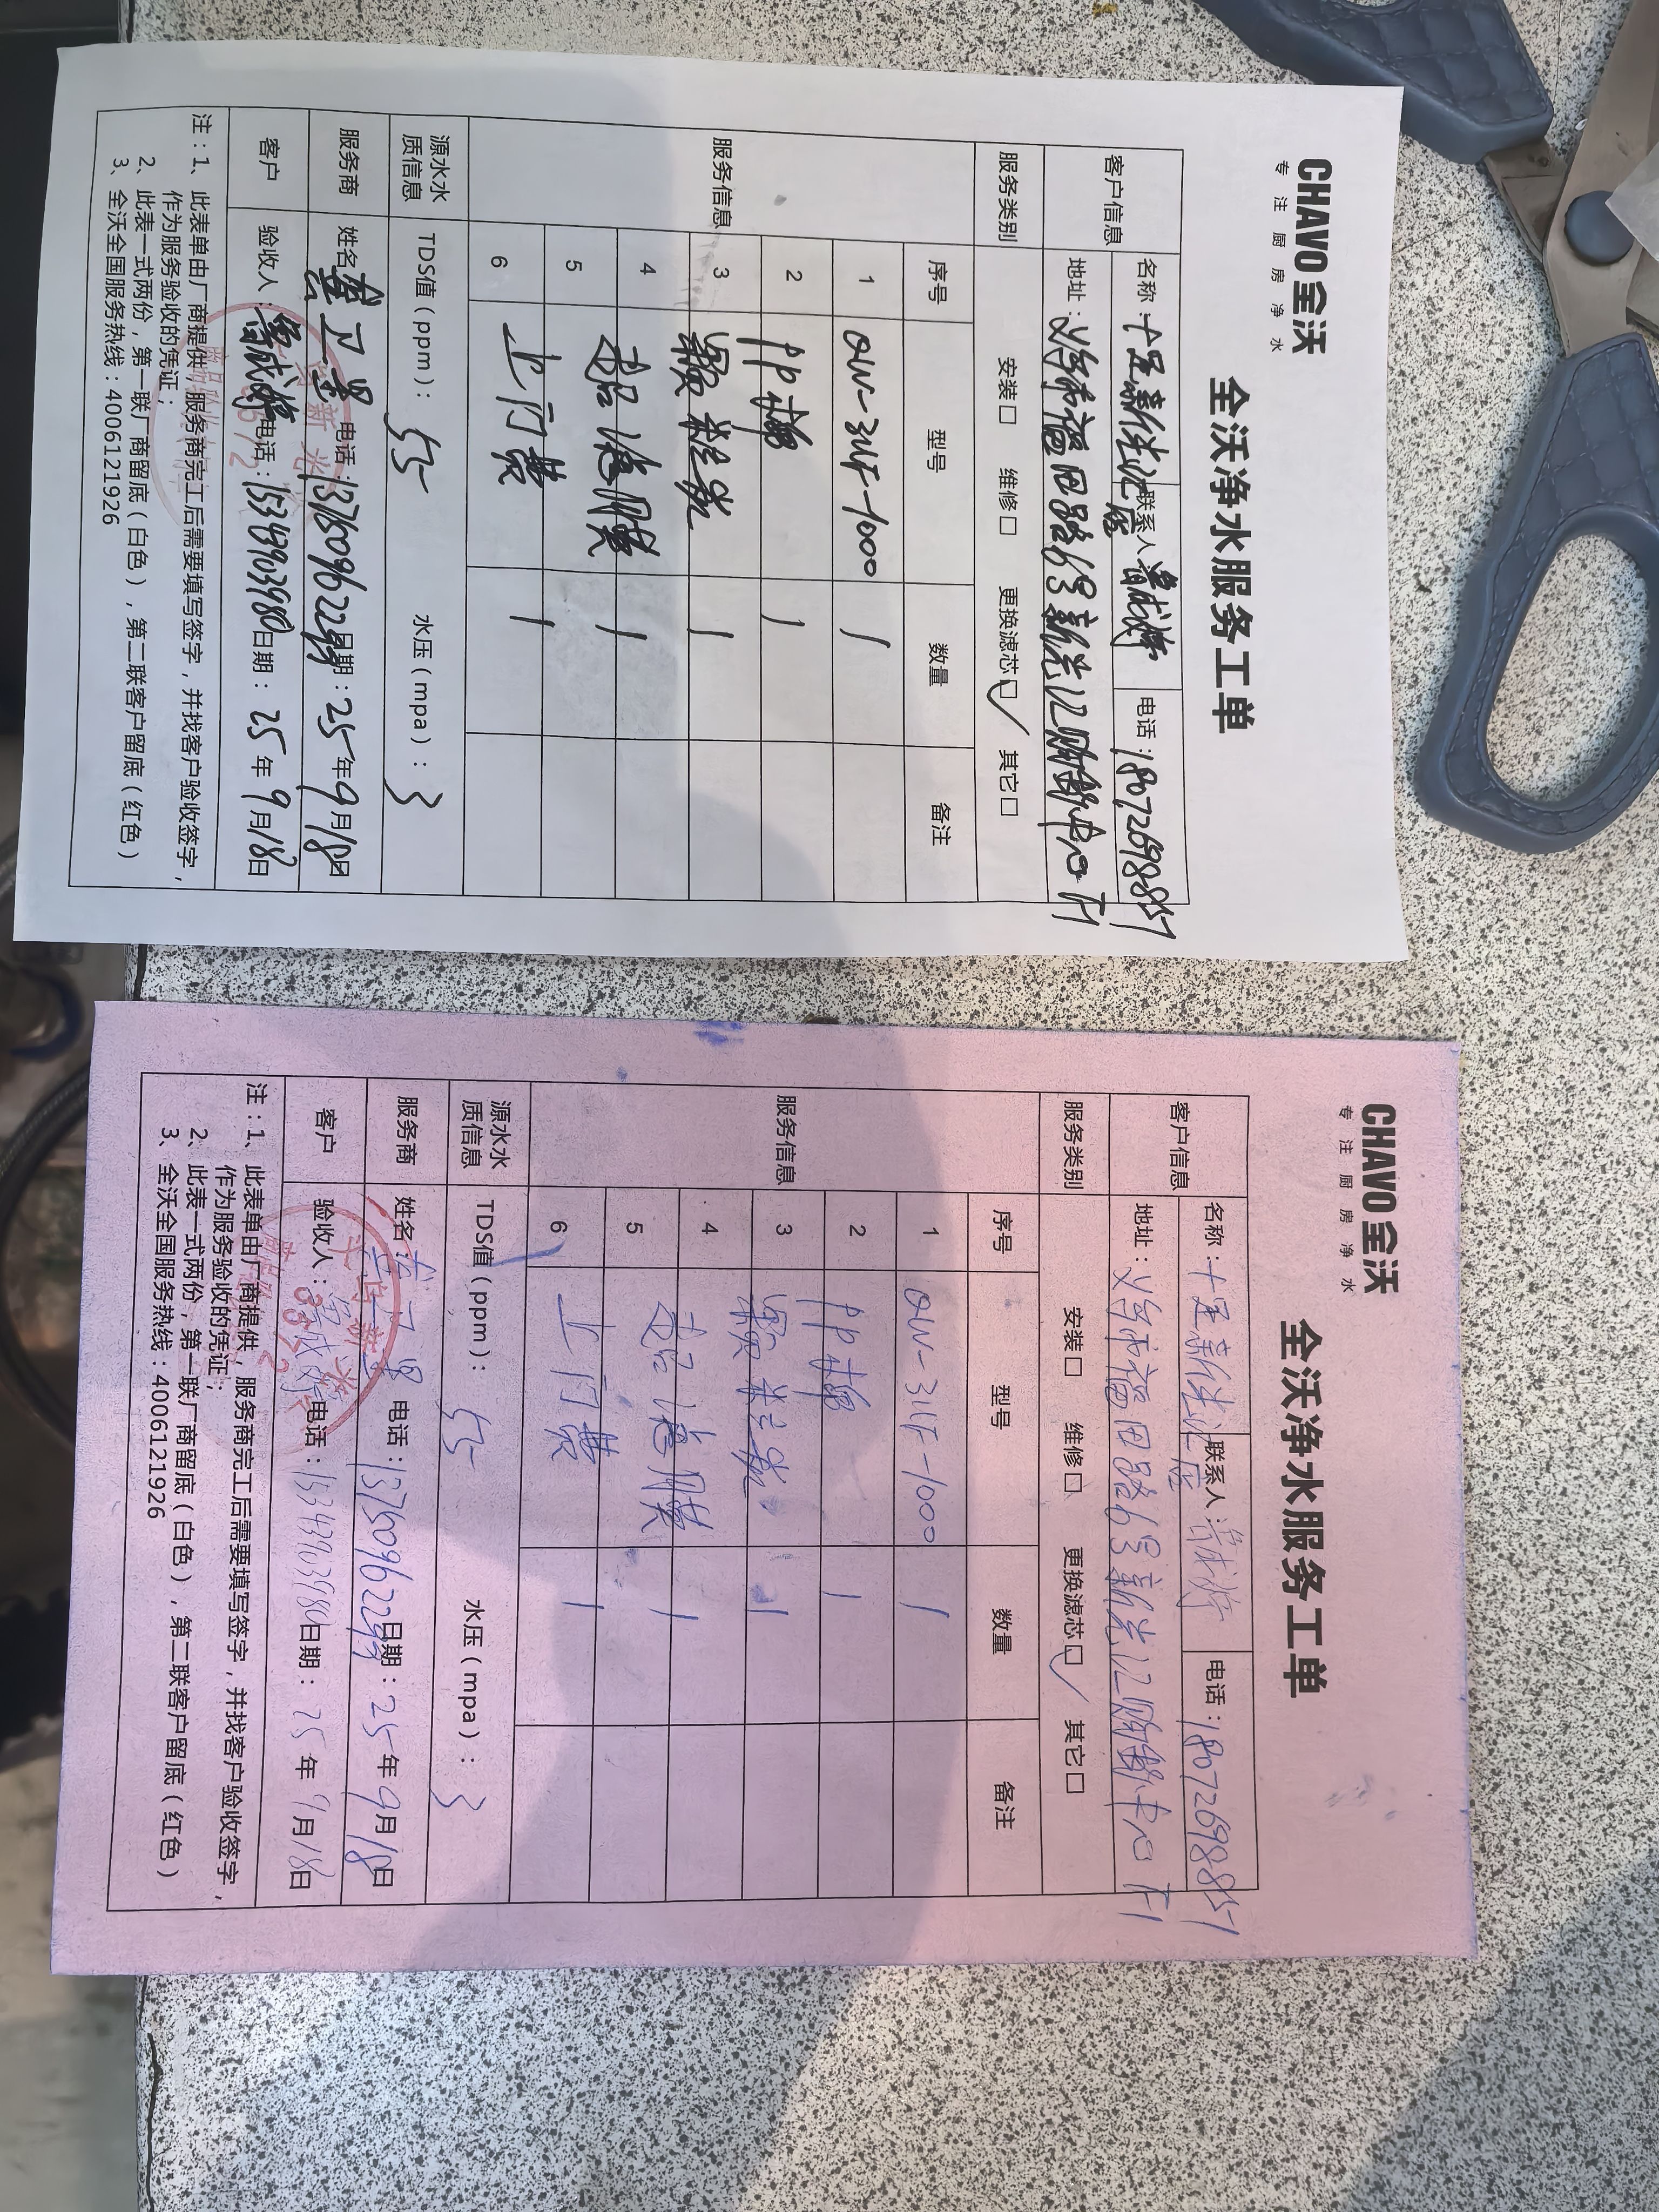 CHAVO 全沃
专注厨房净水
全沃净水服务工单
客户信息
名称：十足新光汇店
联系人：
电话：18072698857
地址：义乌市福田路6号新光汇购物中心F1
服务类别
安装□ 维修□ 更换滤芯□✓ 其它□
服务信息
序号 型号 数量 备注
1 QW-3UF-1000 1
2 PP棉 1
3 颗粒炭 1
4 超滤膜 1
5
6 上门费 1
源水水质信息
TDS值（ppm）：55 水压（mpa）：3
服务商
姓名： 电话：13760962299 日期：25年9月18日
客户
验收人： 电话：15343903980 日期：25年9月18日
注：1、此表单由厂商提供，服务商完工后需要填写签字，并找客户验收签字，
作为服务验收的凭证；
2、此表一式两份，第一联厂商留底（白色），第二联客户留底（红色）
3、全沃全国服务热线：4006121926
CHAVO 全沃
专注厨房净水
全沃净水服务工单
客户信息
名称：十足新光汇店
联系人：
电话：18072698857
地址：义乌市福田路6号新光汇购物中心F1
服务类别
安装□ 维修□ 更换滤芯□✓ 其它□
服务信息
序号 型号 数量 备注
1 QW-3UF-1000 1
2 PP棉 1
3 颗粒炭 1
4 超滤膜 1
5
6 上门费 1
源水水质信息
TDS值（ppm）：55 水压（mpa）：3
服务商
姓名： 电话：13760962299 日期：25年9月18日
客户
验收人： 电话：15343903980 日期：25年9月18日
注：1、此表单由厂商提供，服务商完工后需要填写签字，并找客户验收签字，
作为服务验收的凭证；
2、此表一式两份，第一联厂商留底（白色），第二联客户留底（红色）
3、全沃全国服务热线：4006121926